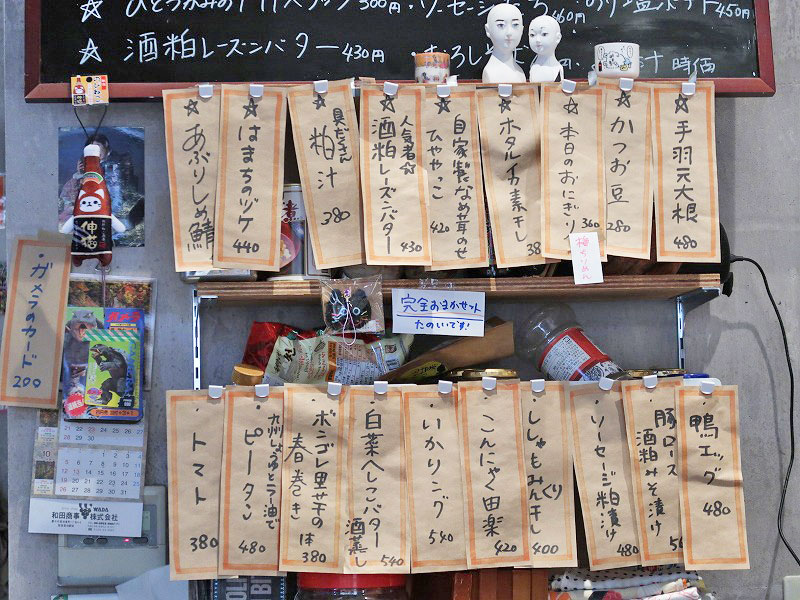 ☆酒粕レーズンバター430円
汁 時価
☆手羽元大根 480
☆かつお豆 280
☆本日のおにぎり 360
梅
☆ホタルイカ素干し 38
☆自家製なめ茸のせ
ひややっこ 420
☆人気者☆
酒粕レーズンバター 430
☆具だきさん
粕汁 380
☆はまちのヅケ 440
☆あぶりしめ鯖
・ガメラのカード 200
完全おまかせセット
たのしいです!
・鴨エッグ 480
・豚ロース
酒粕みそ漬け
・ソーセージ粕漬け 480
・ししゃもみりん干し 400
・こんにゃく田楽 420
・いかリング 540
・白菜へしこバター
酒蒸し 540
・ボンゴレ里芋の
春巻き 1本 380
・九州しょうゆとラー油で
ピータン 480
・トマト 380
WADA
和田商事株式会社